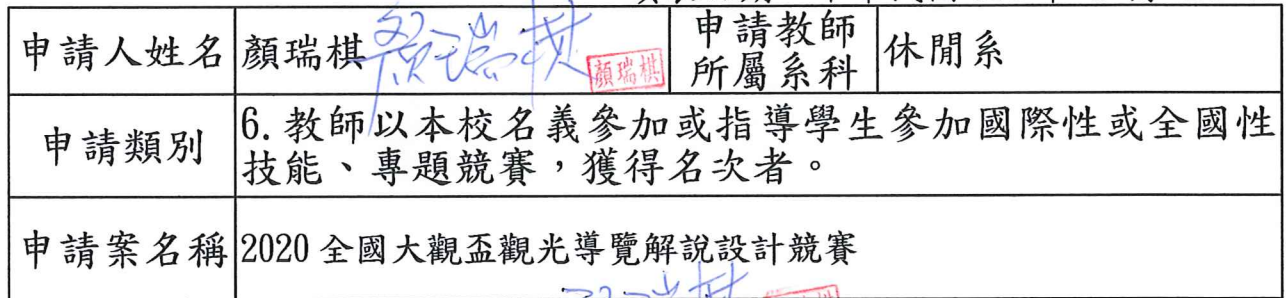 申請人姓名 顏瑞棋 顏瑞棋 顏瑞棋 申請教師所屬系科 休閒系
申請類別 6. 教師以本校名義參加或指導學生參加國際性或全國性
技能、專題競賽，獲得名次者。
申請案名稱 2020 全國大觀盃觀光導覽解說設計競賽